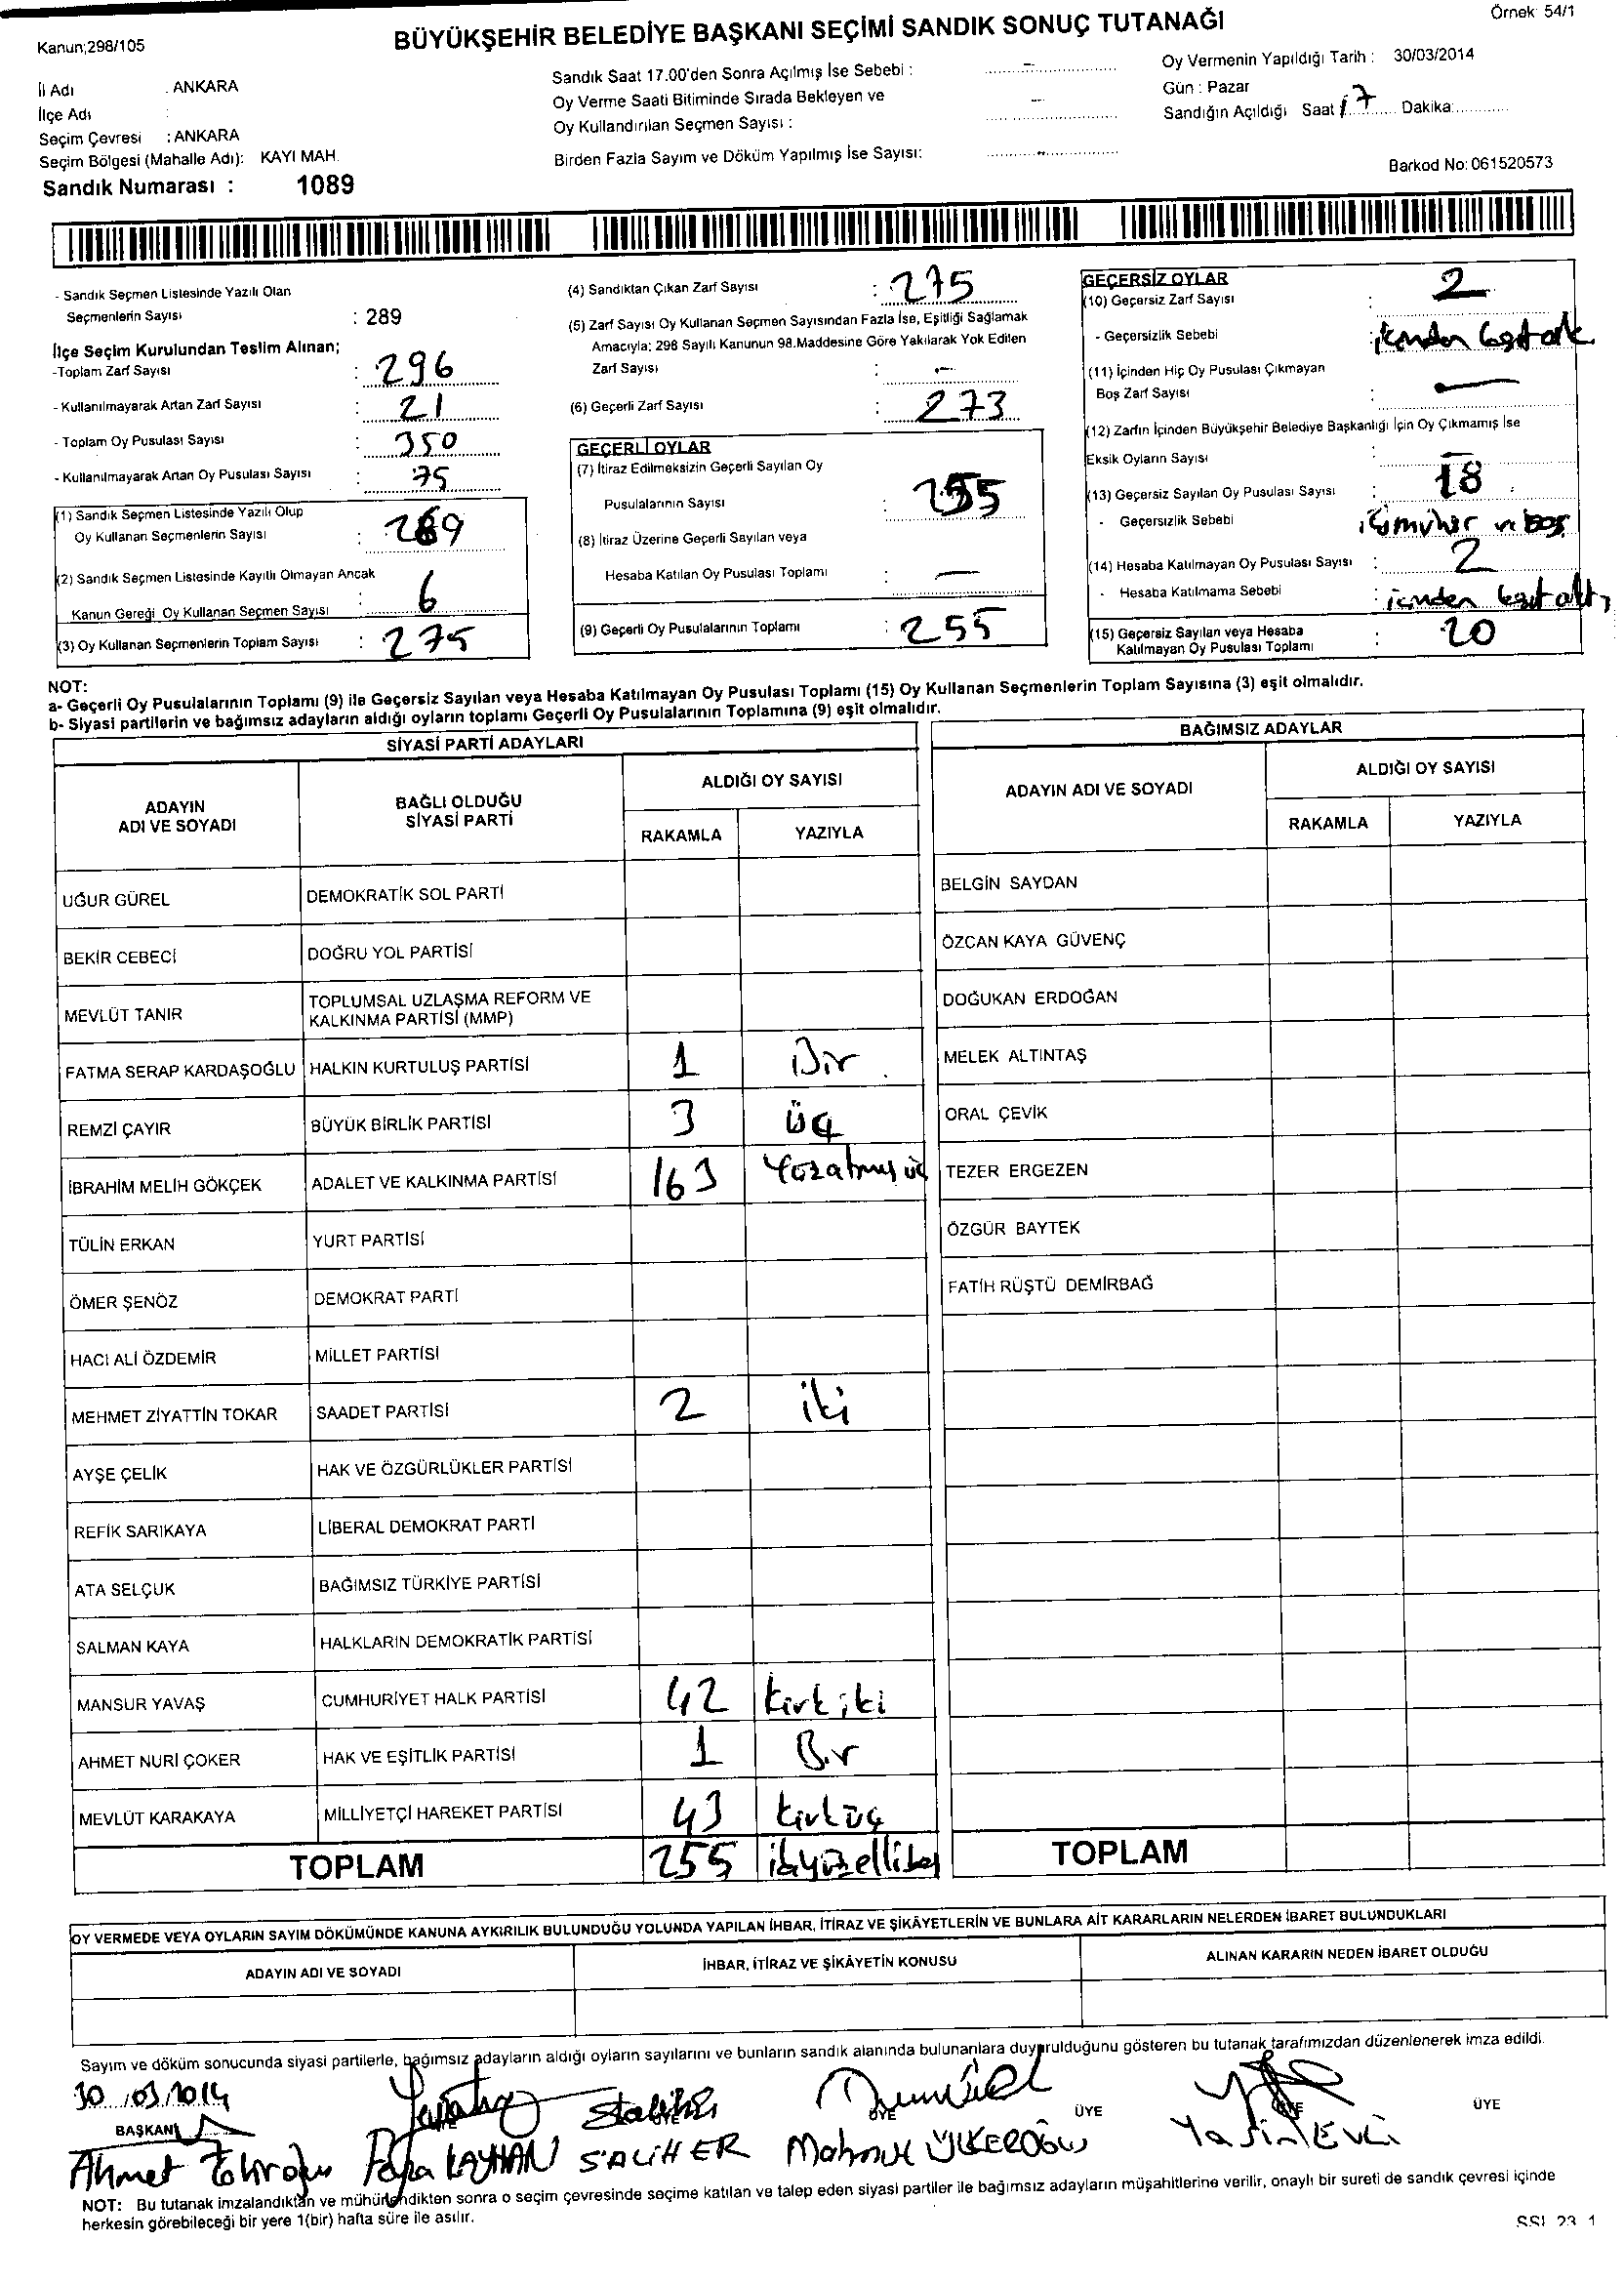 Örnek: 54/1
Kanun;298/105
BÜYÜKŞEHİR BELEDİYE BAŞKANI SEÇİMİ SANDIK SONUÇ TUTANAĞI
İl Adı : ANKARA
İlçe Adı :
Seçim Çevresi : ANKARA
Seçim Bölgesi (Mahalle Adı): KAYI MAH.
Sandık Numarası : 1089
Sandık Saat 17.00'den Sonra Açılmış İse Sebebi : –
Oy Verme Saati Bitiminde Sırada Bekleyen ve
Oy Kullandırılan Seçmen Sayısı : –
Birden Fazla Sayım ve Döküm Yapılmış İse Sayısı:
Oy Vermenin Yapıldığı Tarih : 30/03/2014
Gün : Pazar
Sandığın Açıldığı Saat 17 Dakika:
Barkod No: 061520573
- Sandık Seçmen Listesinde Yazılı Olan
Seçmenlerin Sayısı : 289
İlçe Seçim Kurulundan Teslim Alınan;
-Toplam Zarf Sayısı : 296
- Kullanılmayarak Artan Zarf Sayısı : 21
- Toplam Oy Pusulası Sayısı : 350
- Kullanılmayarak Artan Oy Pusulası Sayısı : 75
(1) Sandık Seçmen Listesinde Yazılı Olup
Oy Kullanan Seçmenlerin Sayısı : 269
(2) Sandık Seçmen Listesinde Kayıtlı Olmayan Ancak
Kanun Gereği Oy Kullanan Seçmen Sayısı : 6
(3) Oy Kullanan Seçmenlerin Toplam Sayısı : 275
(4) Sandıktan Çıkan Zarf Sayısı : 275
(5) Zarf Sayısı Oy Kullanan Seçmen Sayısından Fazla İse, Eşitliği Sağlamak
Amacıyla; 298 Sayılı Kanunun 98.Maddesine Göre Yakılarak Yok Edilen
Zarf Sayısı : –
(6) Geçerli Zarf Sayısı : 273
GEÇERLİ OYLAR
(7) İtiraz Edilmeksizin Geçerli Sayılan Oy
Pusulalarının Sayısı : 255
(8) İtiraz Üzerine Geçerli Sayılan veya
Hesaba Katılan Oy Pusulası Toplamı : –
(9) Geçerli Oy Pusulalarının Toplamı : 255
GEÇERSİZ OYLAR
(10) Geçersiz Zarf Sayısı : 2
- Geçersizlik Sebebi :
(11) İçinden Hiç Oy Pusulası Çıkmayan
Boş Zarf Sayısı : –
(12) Zarfın İçinden Büyükşehir Belediye Başkanlığı İçin Oy Çıkmamış İse
Eksik Oyların Sayısı : –
(13) Geçersiz Sayılan Oy Pusulası Sayısı : 18
- Geçersizlik Sebebi : ve boş
(14) Hesaba Katılmayan Oy Pusulası Sayısı : 2
- Hesaba Katılmama Sebebi :
(15) Geçersiz Sayılan veya Hesaba
Katılmayan Oy Pusulası Toplamı : 20
NOT:
a- Geçerli Oy Pusulalarının Toplamı (9) ile Geçersiz Sayılan veya Hesaba Katılmayan Oy Pusulası Toplamı (15) Oy Kullanan Seçmenlerin Toplam Sayısına (3) eşit olmalıdır.
b- Siyasi partilerin ve bağımsız adayların aldığı oyların toplamı Geçerli Oy Pusulalarının Toplamına (9) eşit olmalıdır.
SİYASİ PARTİ ADAYLARI
ADAYIN
ADI VE SOYADI
BAĞLI OLDUĞU
SİYASİ PARTİ
ALDIĞI OY SAYISI
RAKAMLA YAZIYLA
UĞUR GÜREL DEMOKRATİK SOL PARTİ
BEKİR CEBECİ DOĞRU YOL PARTİSİ
MEVLÜT TANIR TOPLUMSAL UZLAŞMA REFORM VE
KALKINMA PARTİSİ (MMP)
FATMA SERAP KARDAŞOĞLU HALKIN KURTULUŞ PARTİSİ 1 Bir
REMZİ ÇAYIR BÜYÜK BİRLİK PARTİSİ 3 üç
İBRAHİM MELİH GÖKÇEK ADALET VE KALKINMA PARTİSİ 163 Yüzatmış üç
TÜLİN ERKAN YURT PARTİSİ
ÖMER ŞENÖZ DEMOKRAT PARTİ
HACI ALİ ÖZDEMİR MİLLET PARTİSİ
MEHMET ZİYATTİN TOKAR SAADET PARTİSİ 2 iki
AYŞE ÇELİK HAK VE ÖZGÜRLÜKLER PARTİSİ
REFİK SARIKAYA LİBERAL DEMOKRAT PARTİ
ATA SELÇUK BAĞIMSIZ TÜRKİYE PARTİSİ
SALMAN KAYA HALKLARIN DEMOKRATİK PARTİSİ
MANSUR YAVAŞ CUMHURİYET HALK PARTİSİ 42 kırkiki
AHMET NURİ ÇOKER HAK VE EŞİTLİK PARTİSİ 1 Bir
MEVLÜT KARAKAYA MİLLİYETÇİ HAREKET PARTİSİ 43 kırküç
TOPLAM 255 ikiyüzellibeş
BAĞIMSIZ ADAYLAR
ADAYIN ADI VE SOYADI
ALDIĞI OY SAYISI
RAKAMLA YAZIYLA
BELGİN SAYDAN
ÖZCAN KAYA GÜVENÇ
DOĞUKAN ERDOĞAN
MELEK ALTINTAŞ
ORAL ÇEVİK
TEZER ERGEZEN
ÖZGÜR BAYTEK
FATİH RÜŞTÜ DEMİRBAĞ
TOPLAM
OY VERMEDE VEYA OYLARIN SAYIM DÖKÜMÜNDE KANUNA AYKIRILIK BULUNDUĞU YOLUNDA YAPILAN İHBAR, İTİRAZ VE ŞİKÂYETLERİN VE BUNLARA AİT KARARLARIN NELERDEN İBARET BULUNDUKLARI
ADAYIN ADI VE SOYADI İHBAR, İTİRAZ VE ŞİKÂYETİN KONUSU ALINAN KARARIN NEDEN İBARET OLDUĞU
Sayım ve döküm sonucunda siyasi partilerle, bağımsız adayların aldığı oyların sayılarını ve bunların sandık alanında bulunanlara duyurulduğunu gösteren bu tutanak tarafımızdan düzenlenerek imza edildi.
30/03/2014
BAŞKAN ÜYE ÜYE ÜYE ÜYE ÜYE ÜYE
Ahmet SALİH ER Mahmut ÜLKEROĞLU Yasin EVCİ
NOT: Bu tutanak imzalandıktan ve mühürlendikten sonra o seçim çevresinde seçime katılan ve talep eden siyasi partiler ile bağımsız adayların müşahitlerine verilir, onaylı bir sureti de sandık çevresi içinde
herkesin görebileceği bir yere 1(bir) hafta süre ile asılır.